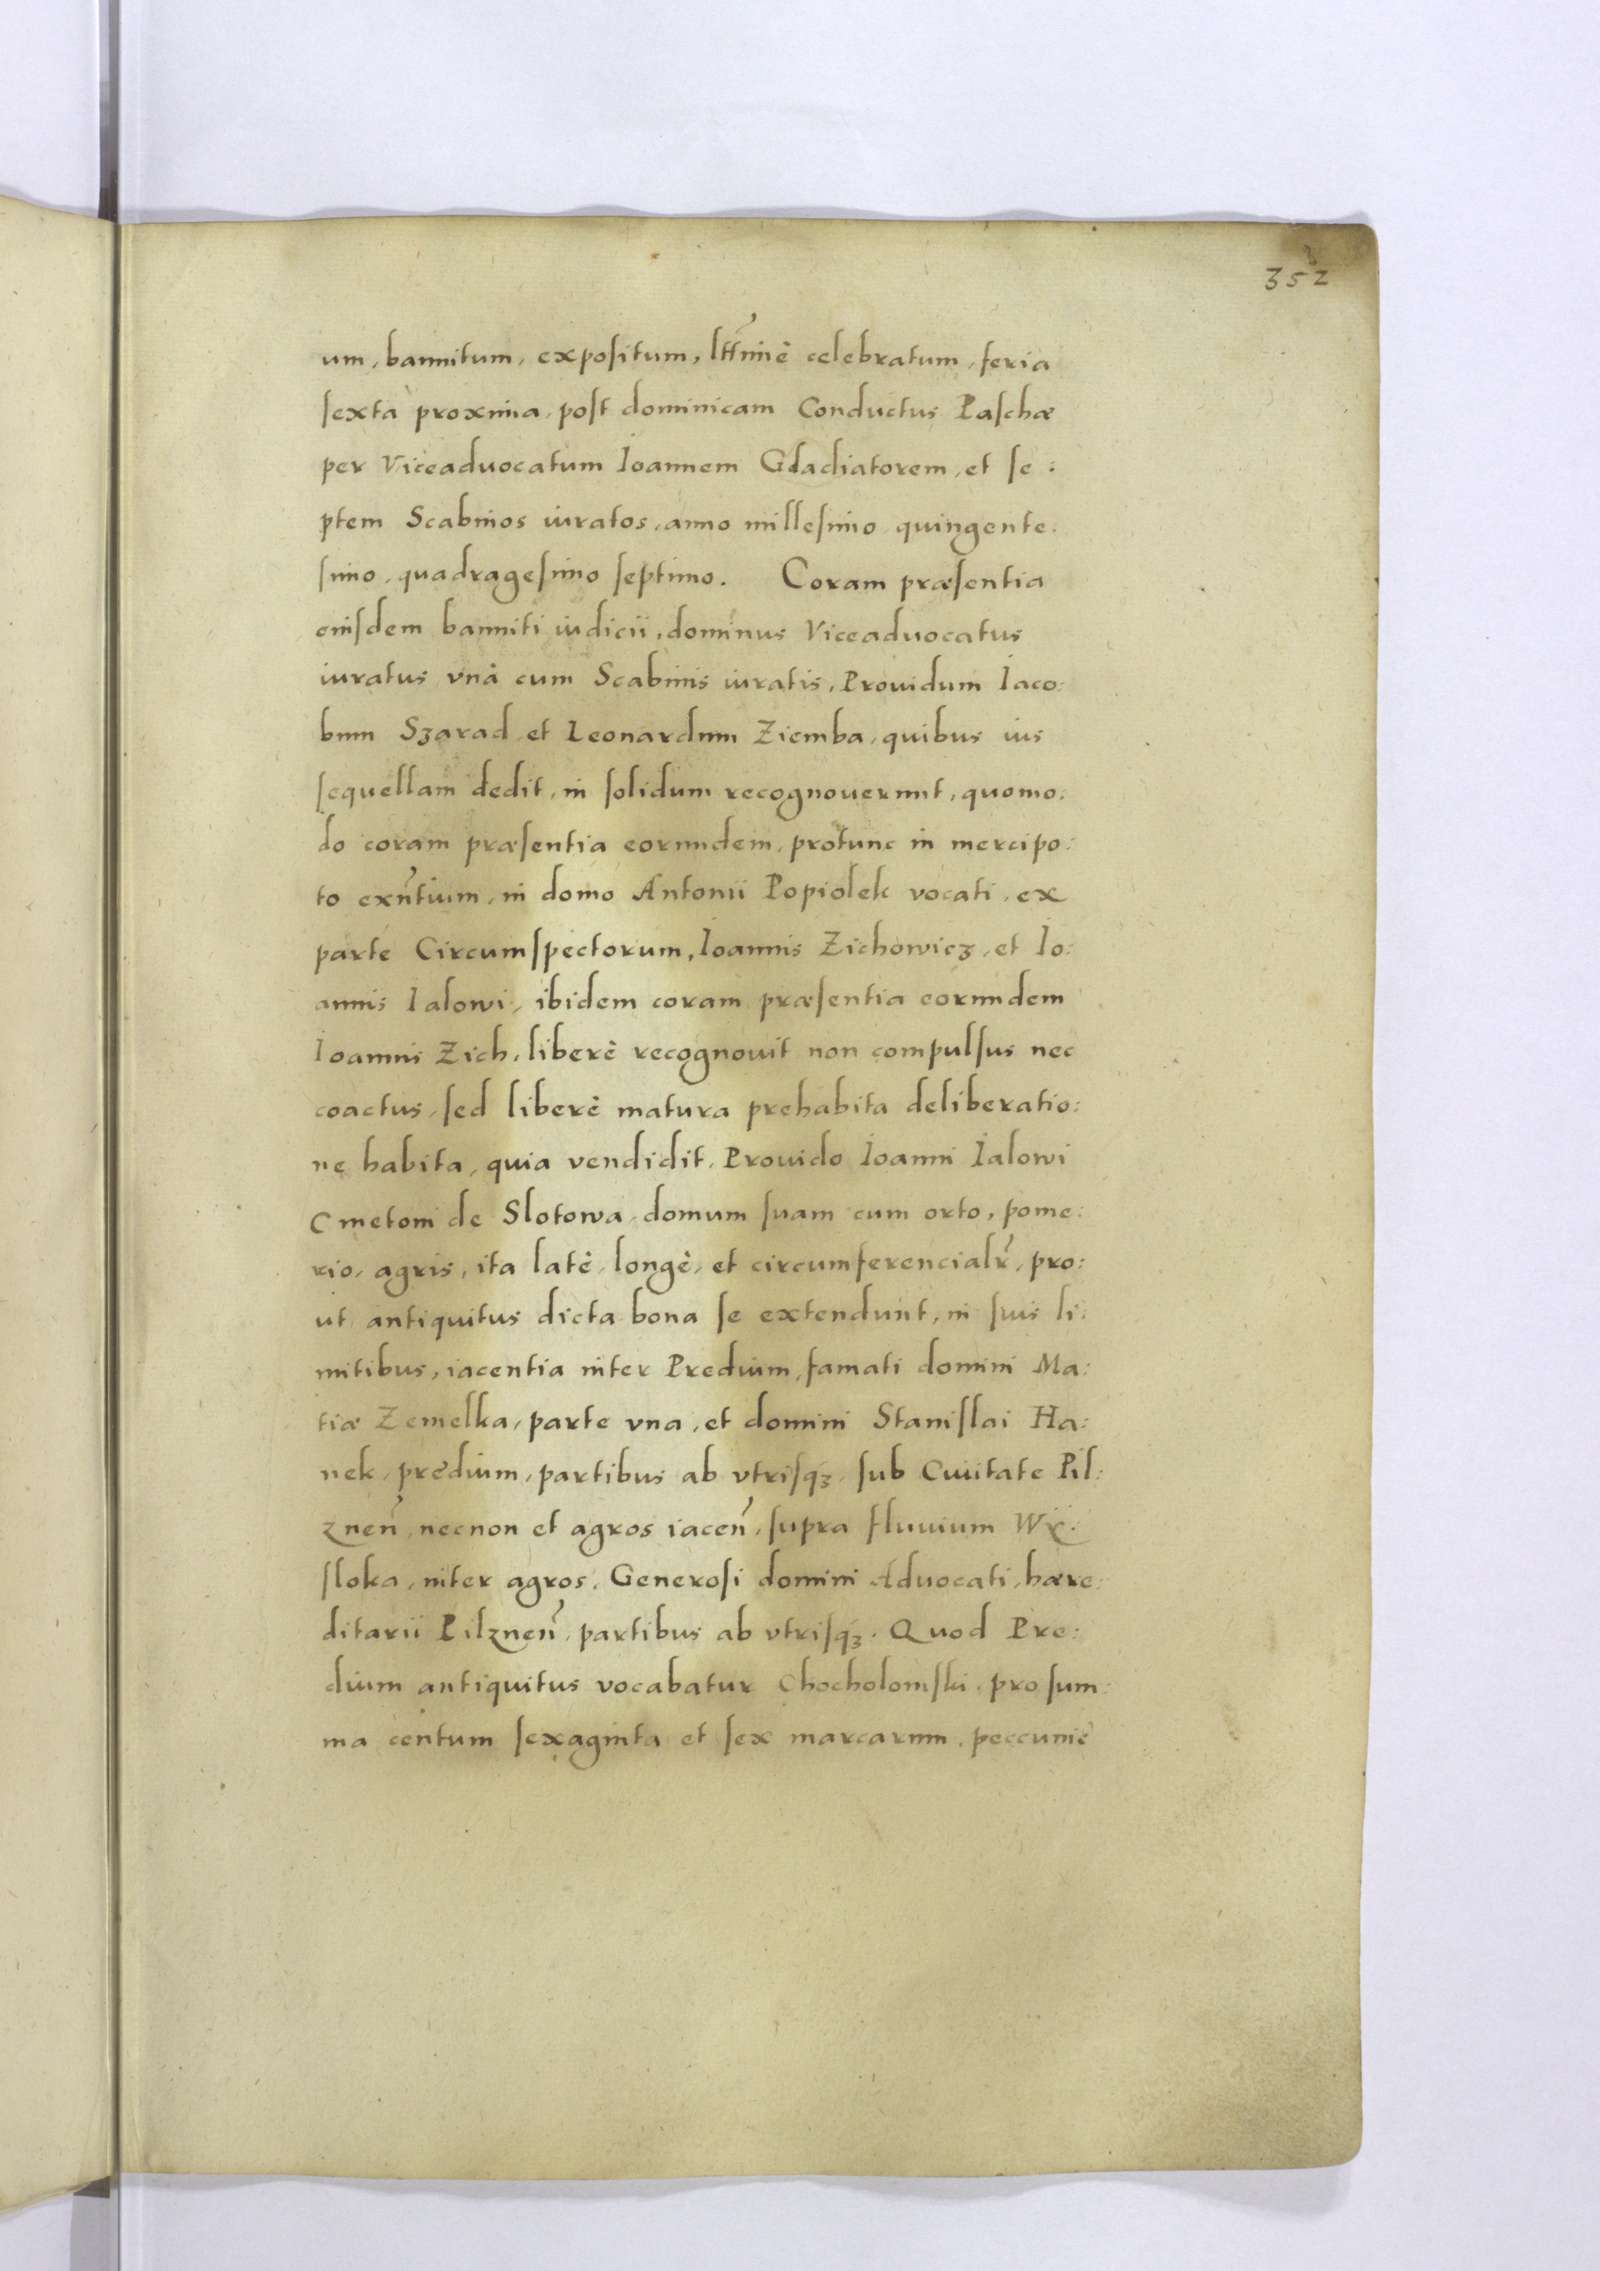 352
um, bannitum, expositum, lt̃t̃imè celebratum, feria
sexta proxima, post dominicam Conductus Paschæ
per Viceaduocatum Ioannem Gladiatorem, et se:
ptem Scabinos iuratos, anno millesimo quingente:
simo, quadragesimo septimo. Coram præsentia
eiusdem banniti iudicii, dominus Viceaduocatus
iuratus vnà cum Scabinis iuratis, Prouidum Iaco:
bum Szarad et Leonardum Ziemba, quibus ius
sequellam dedit, in solidum recognouerunt, quomo:
do coram præsentia eorundem, protunc in mercipo:
to exñtium, in domo Antonii Popiolek vocati, ex
parte Circumspectorum, Ioannis Zichowicz, et Io:
annis Ialowi, ibidem coram præsentia eorundem
Ioannis Zich, liberè recognouit non compulsus nec
coactus, sed liberè matura prehabita deliberatio:
ne habita, quia vendidit, Prouido Ioanni Ialowi
Cmetoni de Slotowa, domum suam cum orto, pome:
rio, agris, ita latè, longè, et circumferencialr̃, pro:
ut antiquitus dicta bona se extendunt, in suis li:
mitibus, iacentia inter Predium, famati domini Ma:
tiæ Zemelka, parte vna, et domini Stanislai Ha:
nek, predium, partibus ab vtrisqꝫ, sub Ciuitate Pil:
zneñ, necnon et agros iaceñ, supra fluuium Wÿ:
sloka, inter agros, Generosi domini Aduocati, hære:
ditarii Pilzneñ, partibus ab vtrisqꝫ. Quod Pre:
dium antiquitus vocabatur Chocholomski, pro sum:
ma centum sexaginta et sex marcarum, peccunie